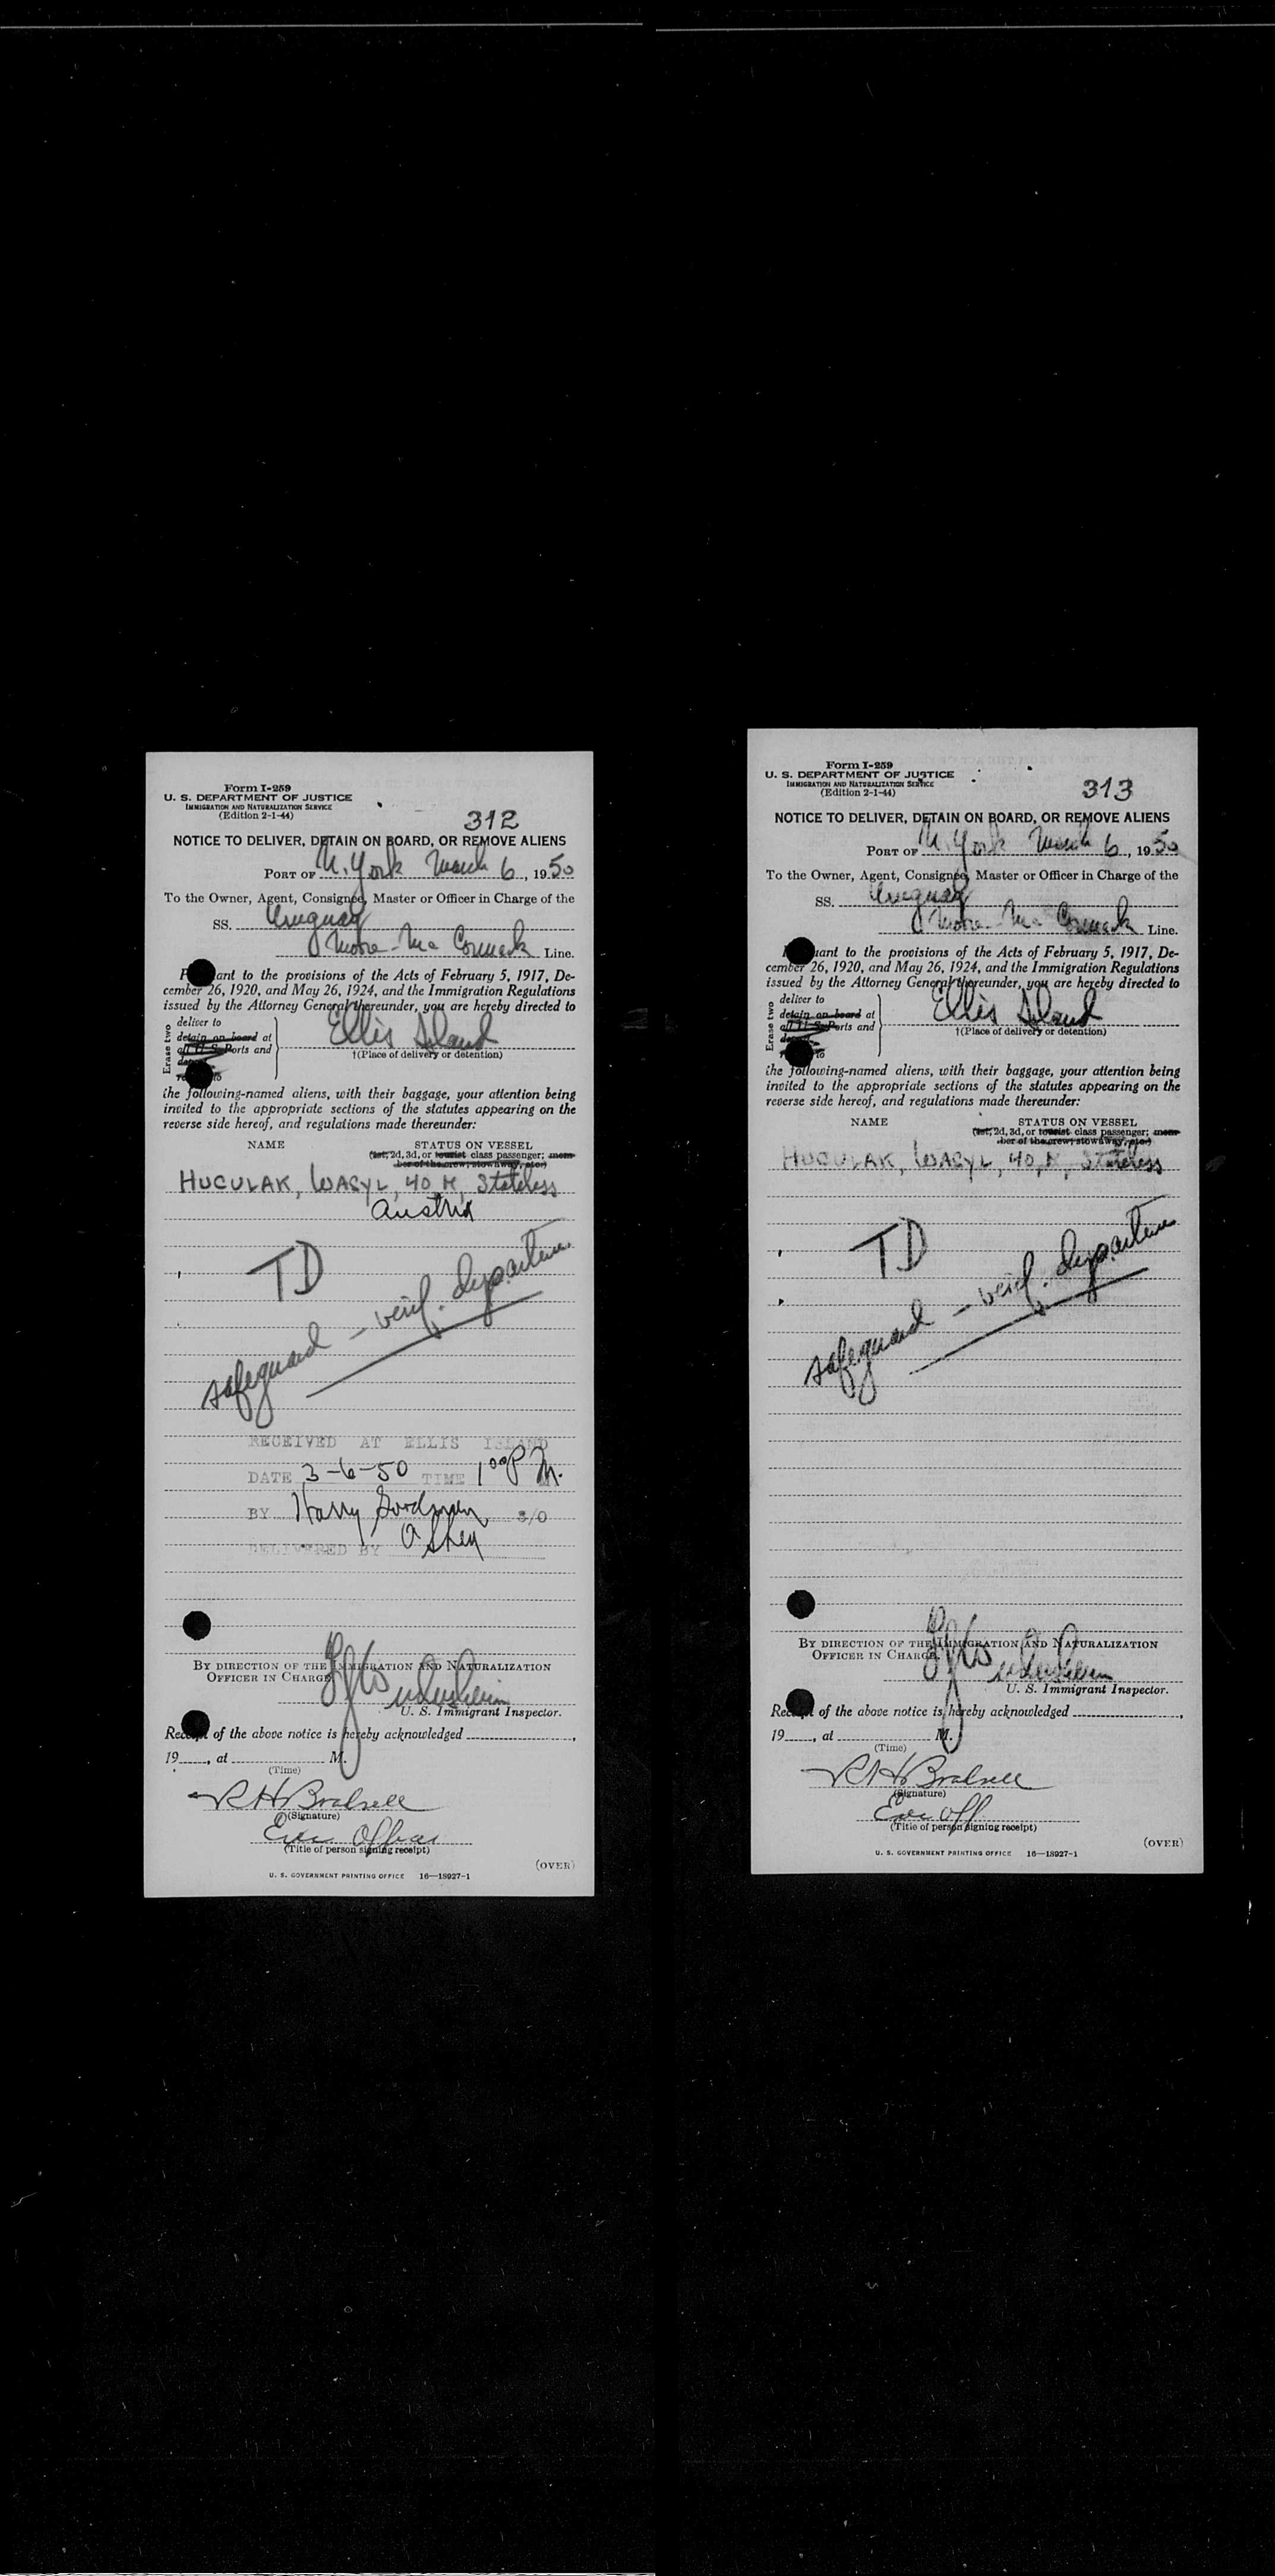 Form I-259
U. S. DEPARTMENT OF JUSTICE
IMMIGRATION AND NATURALIZATION SERVICE
(Edition 2-1-44)
312
NOTICE TO DELIVER, DETAIN ON BOARD, OR REMOVE ALIENS
PORT OF N. York March 6, 1950
To the Owner, Agent, Consignee, Master or Officer in Charge of the
SS. Uruguay
Moore-McCormack Line.
ant to the provisions of the Acts of February 5, 1917, De-
cember 26, 1920, and May 26, 1924, and the Immigration Regulations
issued by the Attorney General thereunder, you are hereby directed to
Erase two
deliver to
detain on board at
all U. S. Ports and
Ellis Island
†(Place of delivery or detention)
the following-named aliens, with their baggage, your attention being
invited to the appropriate sections of the statutes appearing on the
reverse side hereof, and regulations made thereunder:
NAME STATUS ON VESSEL
(1st, 2d, 3d, or tourist class passenger; mem-
ber of the crew; stowaway, etc.)
HUCULAK, WASYL, 40, M, Stateless
Austria
TD
safeguard - verif. departure
RECEIVED AT ELLIS ISLAND
DATE 3-6-50 TIME 1 00 P M.
BY Harry Goodman S/O
DELIVERED BY
BY DIRECTION OF THE IMMIGRATION AND NATURALIZATION
OFFICER IN CHARGE
U. S. Immigrant Inspector.
Receipt of the above notice is hereby acknowledged
19 , at M.
(Time)
(Signature)
Exec Officer
(Title of person signing receipt)
(OVER)
U. S. GOVERNMENT PRINTING OFFICE 16—18927-1
Form I-259
U. S. DEPARTMENT OF JUSTICE
IMMIGRATION AND NATURALIZATION SERVICE
(Edition 2-1-44)
313
NOTICE TO DELIVER, DETAIN ON BOARD, OR REMOVE ALIENS
PORT OF N. York March 6, 1950
To the Owner, Agent, Consignee, Master or Officer in Charge of the
SS. Uruguay
Moore-McCormack Line.
uant to the provisions of the Acts of February 5, 1917, De-
cember 26, 1920, and May 26, 1924, and the Immigration Regulations
issued by the Attorney General thereunder, you are hereby directed to
Erase two
deliver to
detain on board at
all U. S. Ports and
Ellis Island
†(Place of delivery or detention)
the following-named aliens, with their baggage, your attention being
invited to the appropriate sections of the statutes appearing on the
reverse side hereof, and regulations made thereunder:
NAME STATUS ON VESSEL
(1st, 2d, 3d, or tourist class passenger; mem-
ber of the crew; stowaway, etc.)
HUCULAK, WASYL, 40, M, Stateless
TD
safeguard - verif. departure
BY DIRECTION OF THE IMMIGRATION AND NATURALIZATION
OFFICER IN CHARGE
U. S. Immigrant Inspector.
Receipt of the above notice is hereby acknowledged
19 , at M.
(Time)
(Signature)
Exec Off
(Title of person signing receipt)
(OVER)
U. S. GOVERNMENT PRINTING OFFICE 16—18927-1